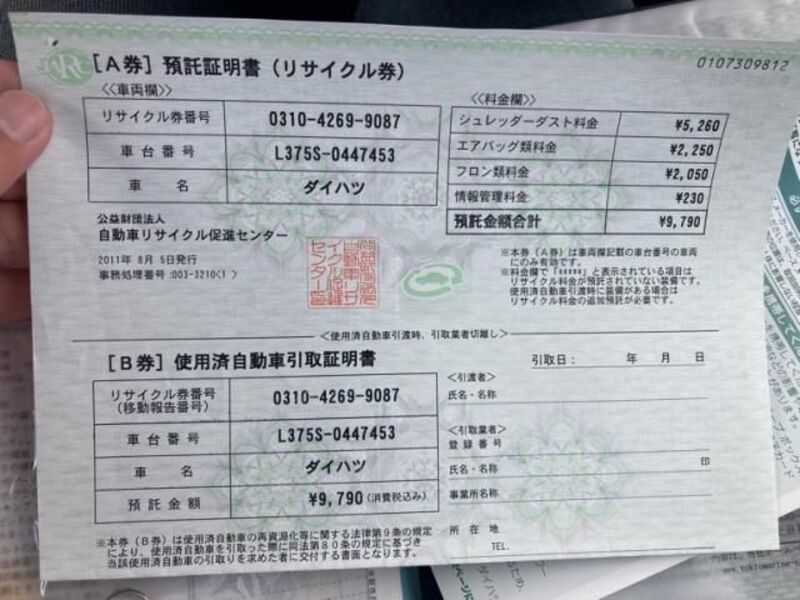 ARC
[A券] 預託証明書 (リサイクル券)
0107309812
≪車両欄≫
リサイクル券番号 0310-4269-9087
車台番号 L375S-0447453
車名 ダイハツ
≪料金欄≫
シュレッダーダスト料金 ¥5,260
エアバッグ類料金 ¥2,250
フロン類料金 ¥2,050
情報管理料金 ¥230
預託金額合計 ¥9,790
公益財団法人
自動車リサイクル促進センター
2011年 8月 5日発行
事務処理番号:003-3210<1 >
※本券(A券)は車両欄記載の車台番号の車両
にのみ有効です。
※料金欄で「*****」と表示されている項目は
リサイクル料金が預託されていない装備です。
使用済自動車引渡時に装備がある場合は
リサイクル料金の追加預託が必要です。
<使用済自動車引渡時、引取業者切離し>
[B券] 使用済自動車引取証明書
引取日: 年 月 日
リサイクル券番号
(移動報告番号) 0310-4269-9087
車台番号 L375S-0447453
車名 ダイハツ
預託金額 ¥9,790(消費税込み)
<引渡者>
氏名・名称
<引取業者>
登録番号
氏名・名称 印
事業所名称
所在地
TEL.
※本券(B券)は使用済自動車の再資源化等に関する法律第9条の規定
により、使用済自動車を引取った際に同法第80条の規定に基づき
当該使用済自動車の引取りを求めた者に交付する書面となります。
ダイハツ